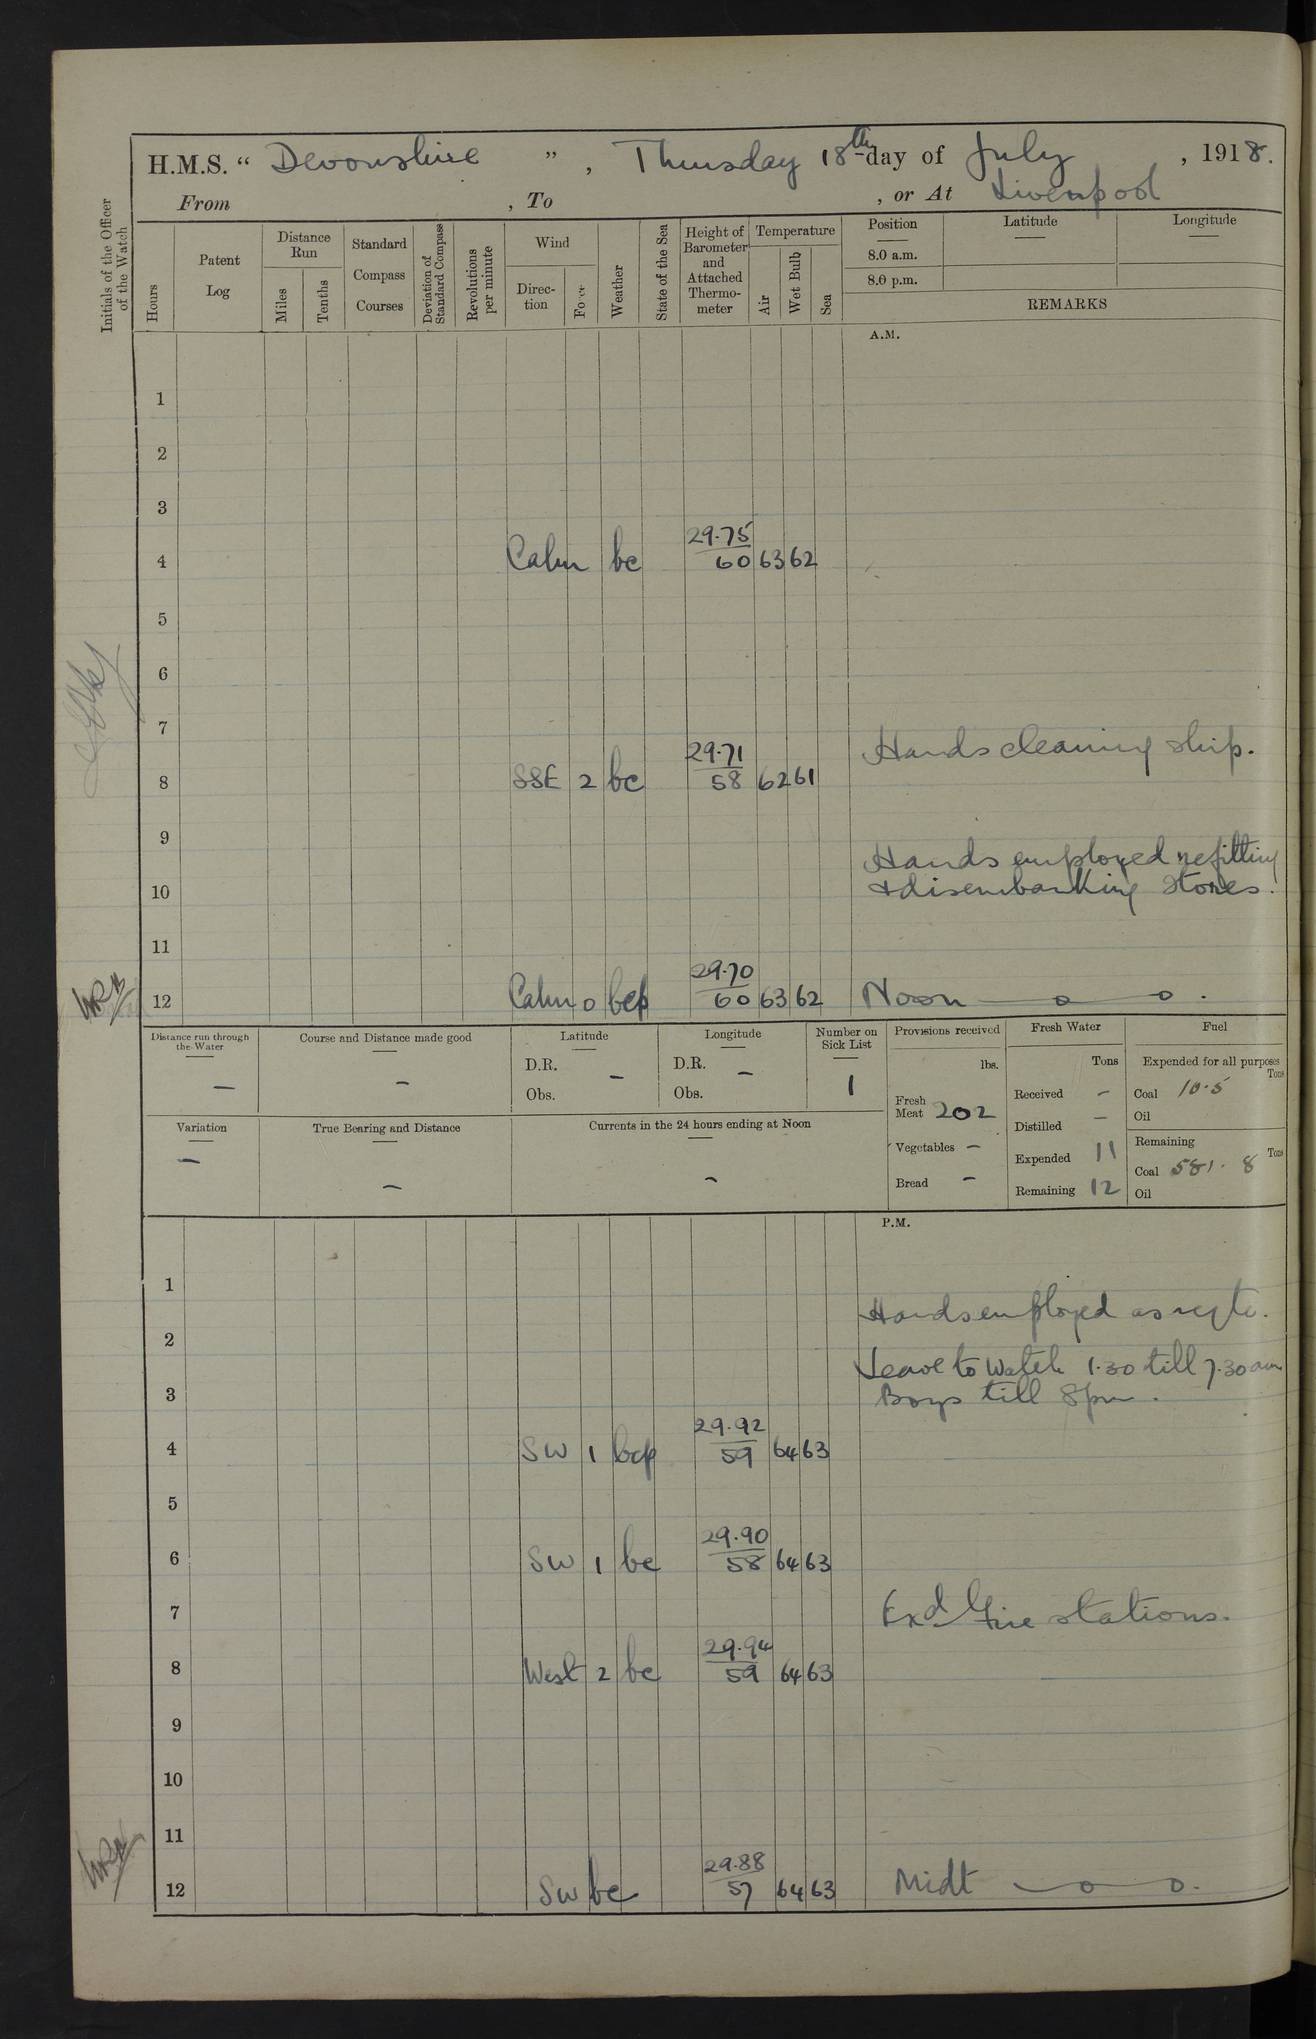 H.M.S. " Devonshire ", Thursday 18th day of July, 1918.
From , To , or At Liverpool
Initials of the Officer of the Watch
Hours
Patent Log
Distance Run
Miles
Tenths
Standard Compass Courses
Deviation of Standard Compass
Revolutions per minute
Wind
Direction
Force
Weather
State of the Sea
Height of Barometer and Attached Thermometer
Temperature
Air
Wet Bulb
Sea
Position
8.0 a.m.
8.0 p.m.
Latitude
Longitude
REMARKS
A.M.
1
2
3
4 Calm bc 29.75 60 63 62
5
6
7
Hands cleaning ship.
8 SSE 2 bc 29.71 58 62 61
9
Hands employed refitting
10 & disembarking stores.
11
12 Calm 0 bcp 29.70 60 63 62 Noon
Distance run through the Water
—
Course and Distance made good
—
Latitude
D.R. —
Obs.
Longitude
D.R. —
Obs.
Number on Sick List
1
Provisions received
lbs.
Fresh Meat 202
Vegetables —
Bread —
Fresh Water
Tons
Received —
Distilled —
Expended 11
Remaining 12
Fuel
Expended for all purposes
Tons
Coal 10.5
Oil
Remaining
Tons
Coal 581.8
Oil
Variation
—
True Bearing and Distance
—
Currents in the 24 hours ending at Noon
—
P.M.
1
Hands employed as reqte.
2
Leave to Watch 1.30 till 7.30 am
3 Boys till 8pm.
4 SW 1 bcp 29.92 59 64 63
5
6 SW 1 bc 29.90 58 64 63
7 Exd Fire stations.
8 West 2 bc 29.94 59 64 63
9
10
11
12 SW bc 29.88 57 64 63 Midt